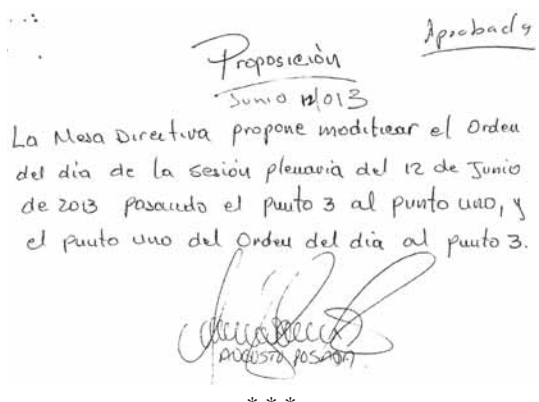 Aprobada
Proposición
Junio 12/013
La Mesa Directiva propone modificar el Orden
del día de la sesión plenaria del 12 de Junio
de 2013 pasando el punto 3 al punto uno, y
el punto uno del Orden del día al punto 3.
AUGUSTO POSADA
* * *